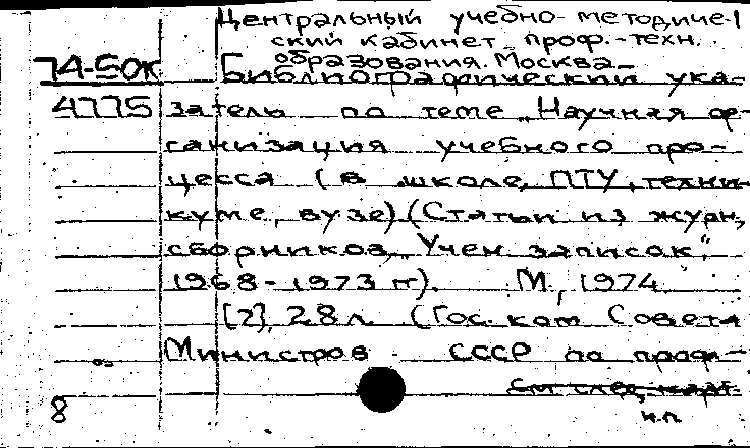 Центральный учебно-методиче-
ский кабинет проф.-техн.
образования. Москва.
74-50к Библиографический ука-
4775 затель по теме „Научная ор-
ганизация учебного про-
цесса (в школе, ПТУ, техни-
куме, вузе) (Статьи из журн,
сборников, „Учен. записок",
1968-1973 гг). М., 1974
[2], 28л. (Гос. ком Совета
Министров СССР по проф-
см след карт.
8 н.п.